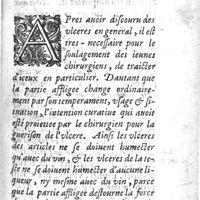 APres auoir discouru des
vlceres en general, il est
tres-necessaire pour le
soulagement des ieunes
chirurgiens, de traicter
d'iceux en particulier. D'autant que
la partie affligee change ordinaire-
ment par son temperament, vsage & si-
tuation, l'intention curatiue qui auoit
esté proiettee par le chirurgien pour la
guerison de l'vlcere. Ainsi les vlceres
des articles ne se doiuent humecter
qu'auec du vin, & les vlceres de la te-
ste ne se doiuent humecter d'aucune li-
queur, ny mesme auec du vin, parce
que la partie affligee destourne la force